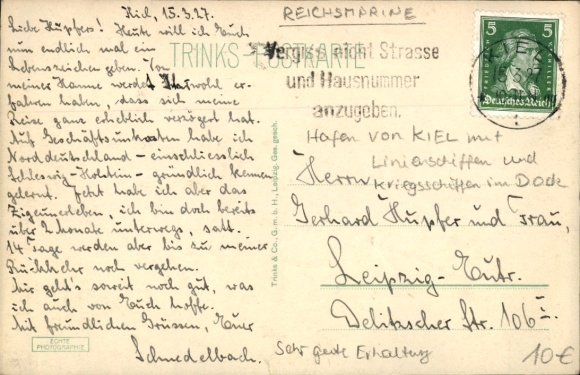 Kiel, 15.3.27.
Liebe Hupfers! Heute will ich Euch
nun endlich mal ein
Lebenszeichen geben. Von
meiner Hanne werdet Ihr wohl er-
fahren haben, dass sich meine
Reise ganz erheblich verzögert hat.
Auf Geschäftsunkosten habe ich
Norddeutschland - einschliesslich
Schleswig-Holstein - gründlich kennen
gelernt. Jetzt habe ich aber das
Zigeunerleben, ich bin doch bereits
über 2 Monate unterwegs, satt.
14 Tage werden aber bis zu meiner
Rückkehr noch vergehen.
Mir geht's soweit noch gut, was
ich auch von Euch hoffe.
Mit freundlichen Grüssen, Euer
Schmedelbach.
ECHTE
PHOTOGRAPHIE
TRINKS-POSTKARTE
Trinks & Co., G. m. b. H., Leipzig. Ges. gesch.
REICHSMARINE
Vergiss nicht Strasse
und Hausnummer
anzugeben.
5 5
Deutsches Reich
KIEL
Hafen von KIEL mit
Linienschiffen und
Kriegsschiffen im Dock
Herrn
Gerhard Hupfer und Frau,
Leipzig-Eutr.
Delitzscher Str. 106 I.
Sehr gute Erhaltung
10€